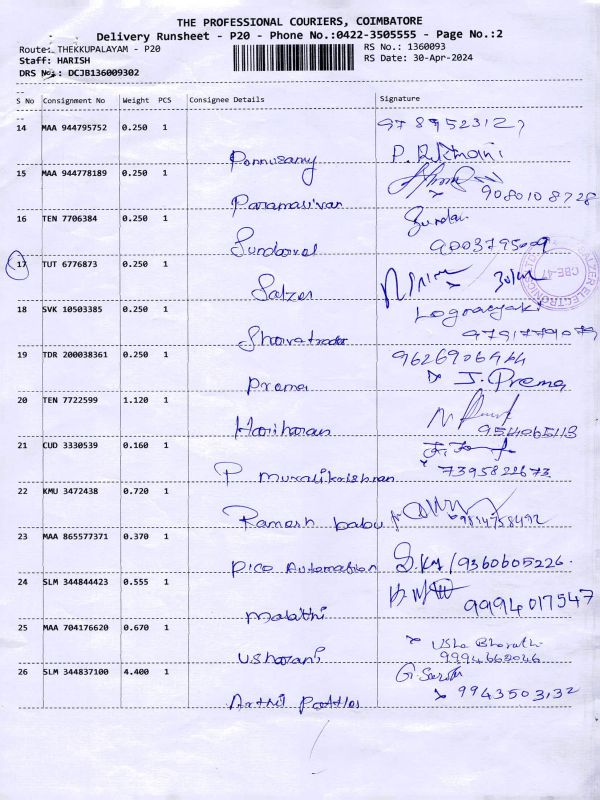 THE PROFESSIONAL COURIERS, COIMBATORE
Delivery Runsheet - P20 - Phone No.:0422-3505555 - Page No.:2
Route: THEKKUPALAYAM - P20
RS No.: 1360093
Staff: HARISH
RS Date: 30-Apr-2024
DRS No.: DCJB136009302
S No Consignment No Weight PCS Consignee Details Signature
14 MAA 944795752 0.250 1
Ponnusamy
15 MAA 944778189 0.250 1
9080108728
Paramasivan
16 TEN 7706384 0.250 1
Sundaravel
17 TUT 6776873 0.250 1
CBE-47
Salzer
18 SVK 10503385 0.250 1
9791779079
19 TDR 200038361 0.250 1
Prema J. Prema
20 TEN 7722599 1.120 1
Hariharan
21 CUD 3330539 0.160 1
P muralikrishnan 7395822673
22 KMU 3472438 0.720 1
Ramesh babu
23 MAA 865577371 0.370 1
Pico Automation S.KM/9360605226
24 SLM 344844423 0.555 1
9994017547
Malathi
25 MAA 704176620 0.670 1
Usha Bharathi
Usharani
26 SLM 344837100 4.400 1
9943503132